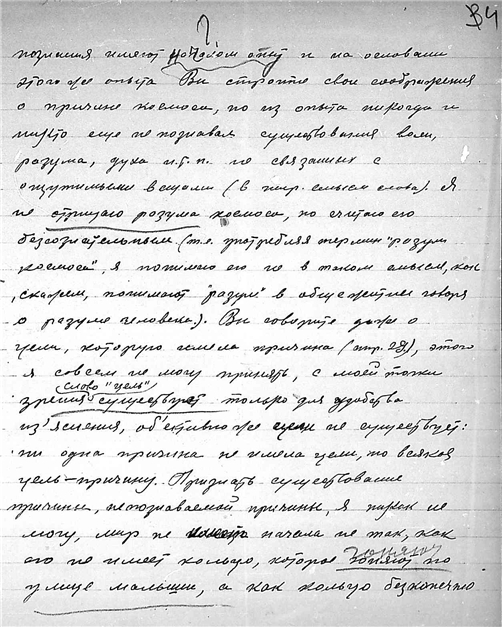 34
?
познания имеют началом опыт и на основании
этого же опыта Вы строите свои соображения
о причине космоса, но из опыта никогда и
никто еще не познавал существования воли,
разума, духа и.т.п. не связанных с
ощутимыми вещами (в шир. смысле слова). Я
не отрицаю разума космоса, но считаю его
безсознательным (т.е. употребляя термин "разум
космоса", я понимаю его не в таком смысле, как
, скажем, понимают "разум" в общежитии говоря
о разуме человека.). Вы говорите даже о
цели, которую имела причина (стр. 28), этого
я совсем не могу принять, с моей точки
слово "цель"
зрения существует только для удобства
из'яснения, об'ективно же цели не существует:
ни одна причина не имела цели, но всякая
цель-причину. Признать существование
причины, непознаваемой причины, я никак не
могу, мир не начала не так, как
его не имеет кольцо, которое
гоняют по
улице малыши, а как кольцо безконечно